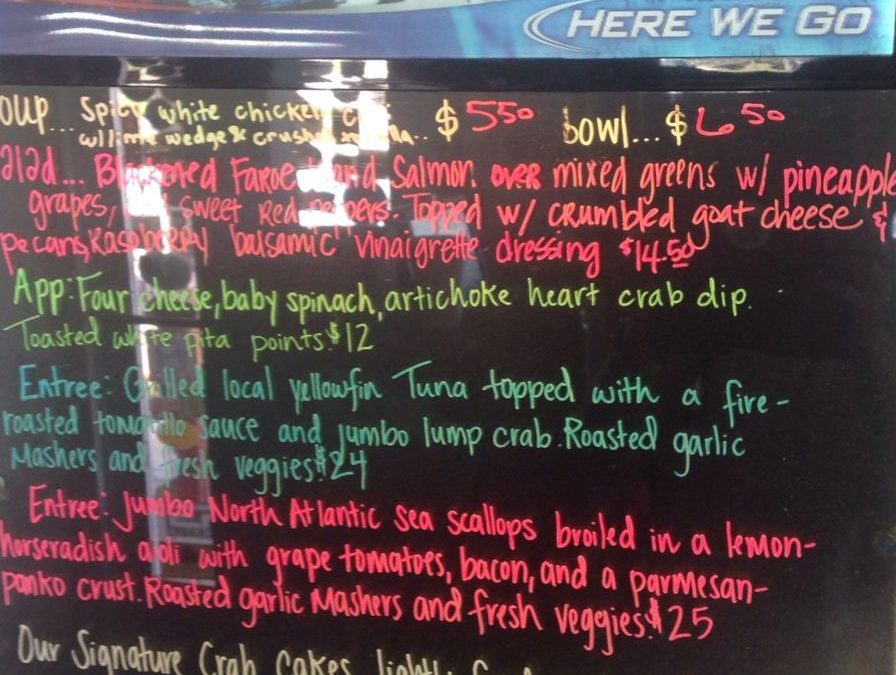 HERE WE GO
oup... Spicy white chicken $550 bowl... $650
w/lime wedge & crushed
alad... Blackened Faroe Island Salmon over mixed greens w/ pineapple
grapes, sweet Red peppers. Topped w/ crumbled goat cheese &
pecans, Raspberry balsamic vinaigrette dressing $14.50
App: Four cheese, baby spinach, artichoke heart crab dip.
Toasted white pita points. $12
Entree: Grilled local yellowfin Tuna topped with a fire-
roasted tomatillo sauce and jumbo lump crab. Roasted garlic
Mashers and fresh veggies. $24
Entree: Jumbo North Atlantic sea scallops broiled in a lemon-
horseradish aioli with grape tomatoes, bacon, and a parmesan-
panko crust. Roasted garlic Mashers and fresh veggies. $25
Our Signature Crab Cakes